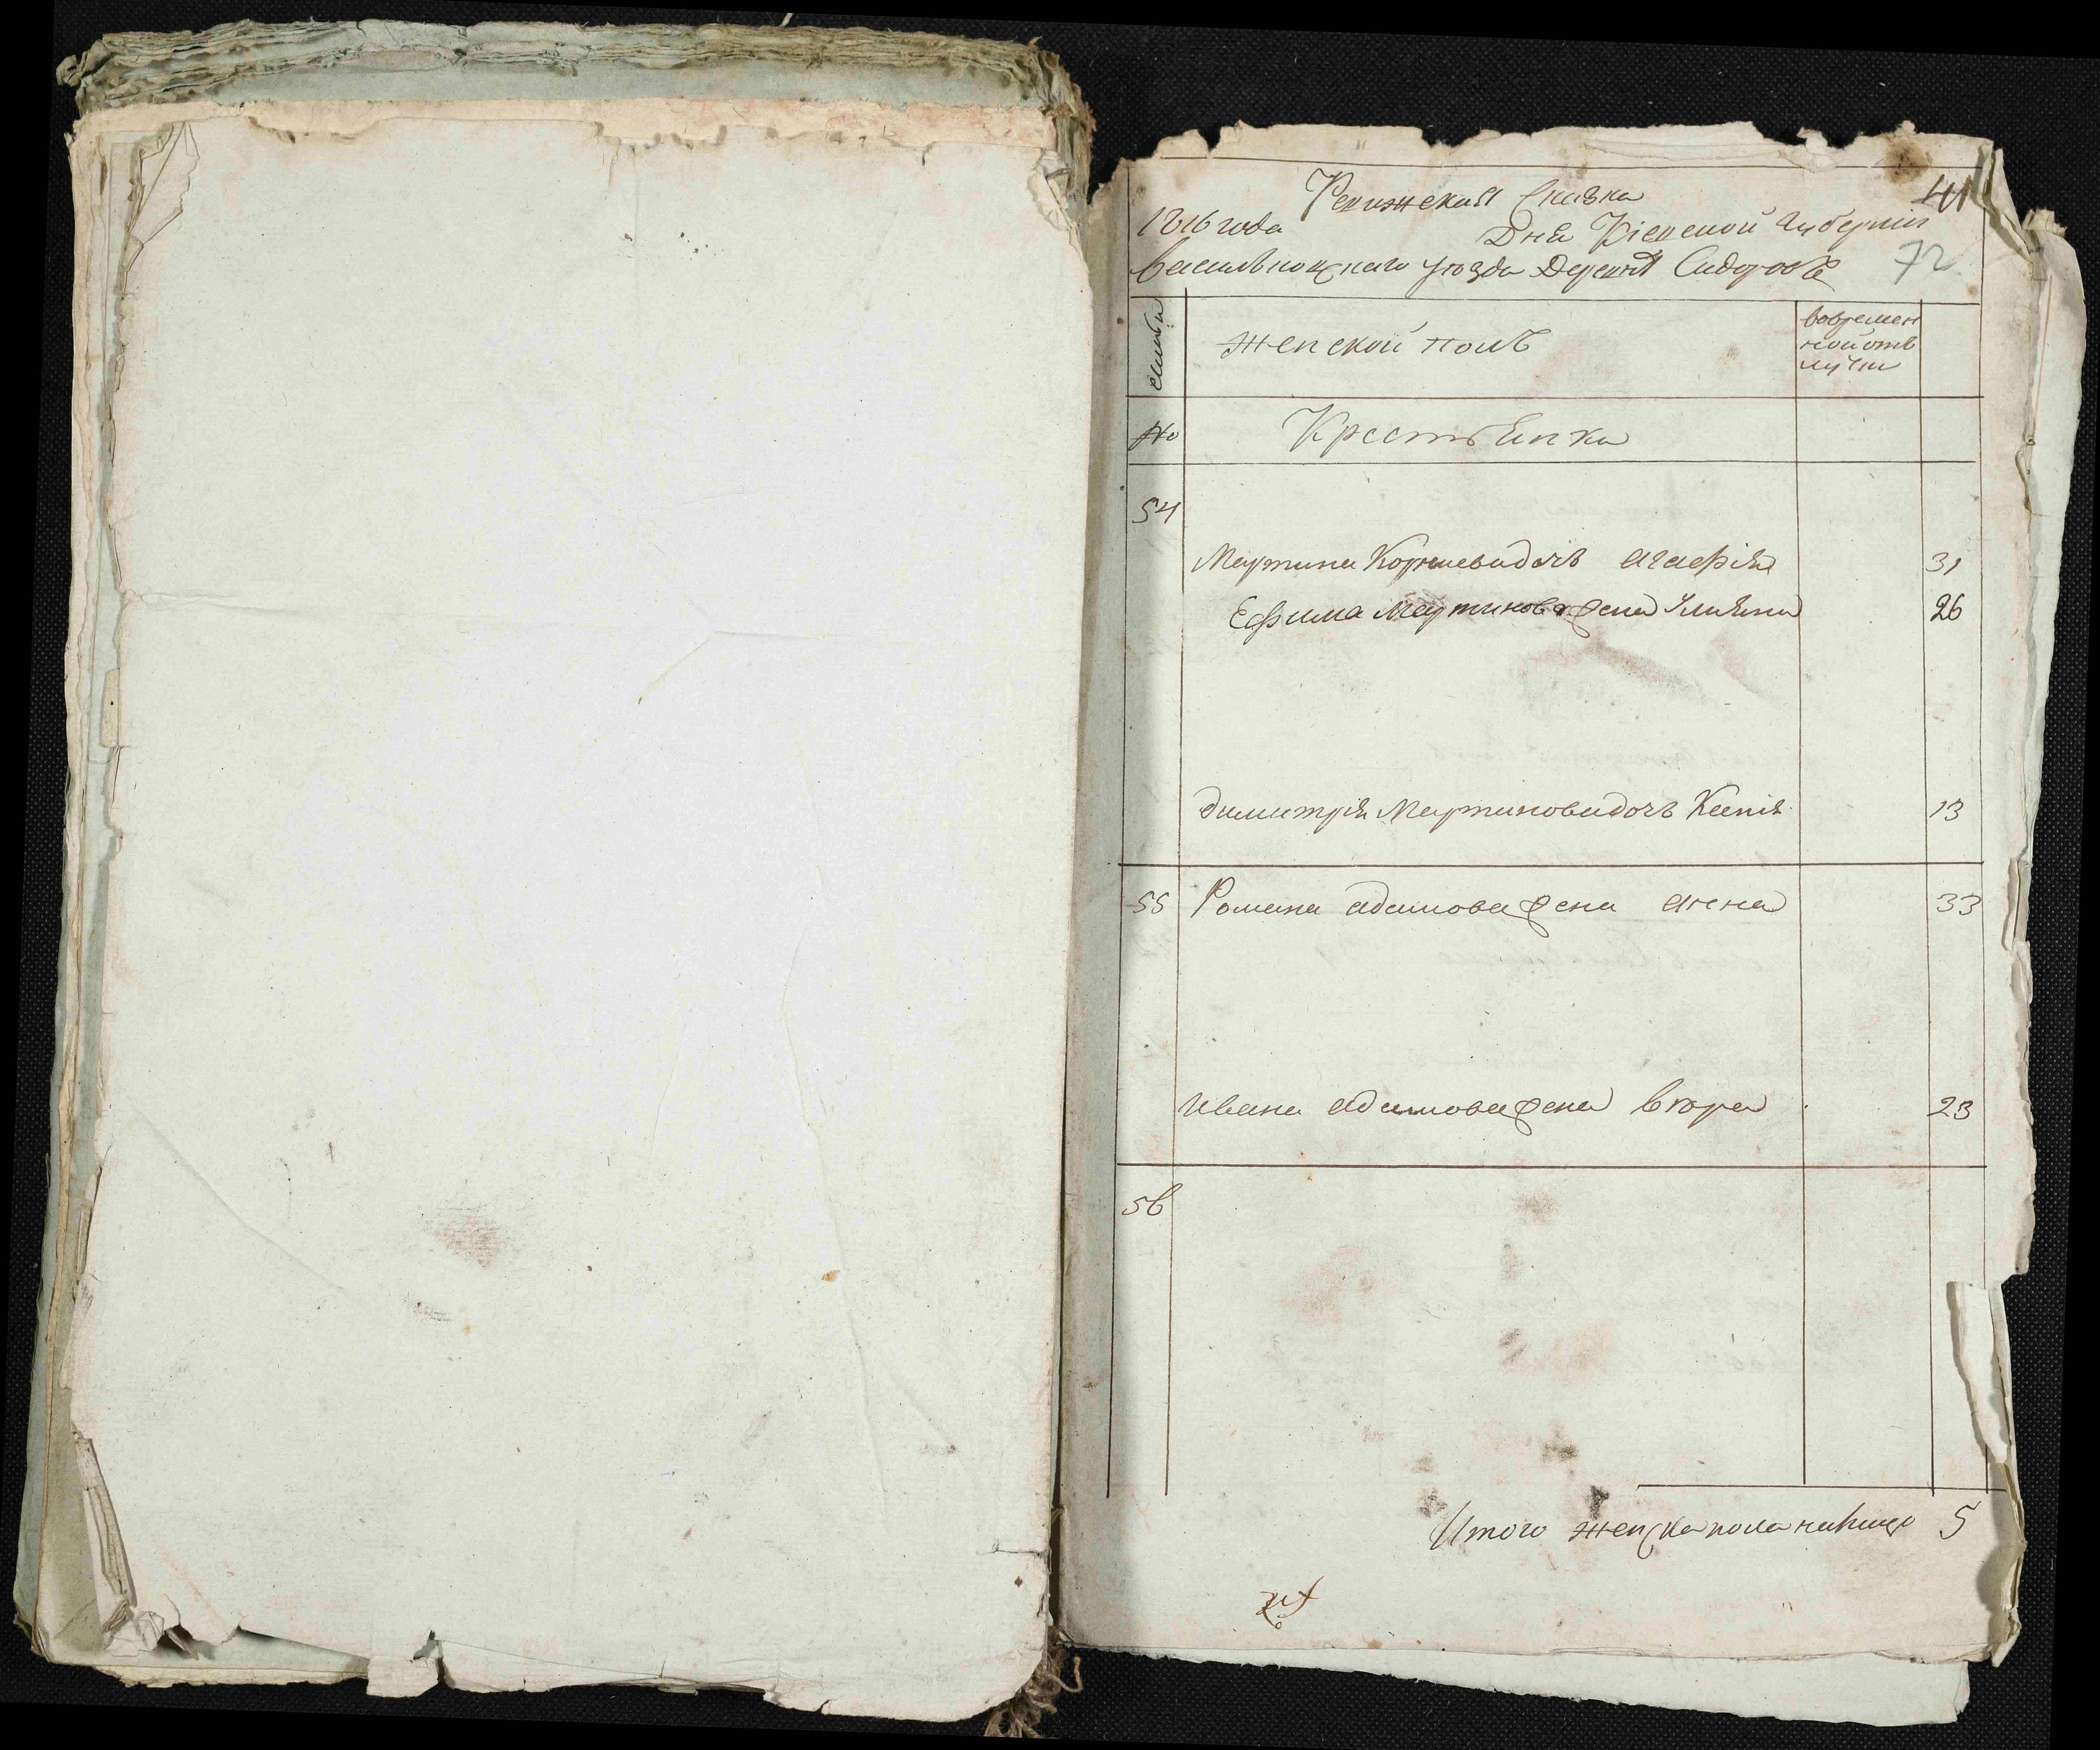 41
Ревижская Сказка
1816 года Дня Кіевской Губерніи
васильковскаго уезда Деревня Сидоровъ 72
семьи
женской полъ
вовремен
ной отъ
лучки
№ Крестьянки
54
Мартина Корниева дочъ агафія 31
Ефима Мартинова жена Улияна 26
димитрія Мартиновича дочъ Ксенія 13
55 Романа адамова жена анна 33
Ивана адамова жена вѣра 23
56
Итого женска пола налицо 5